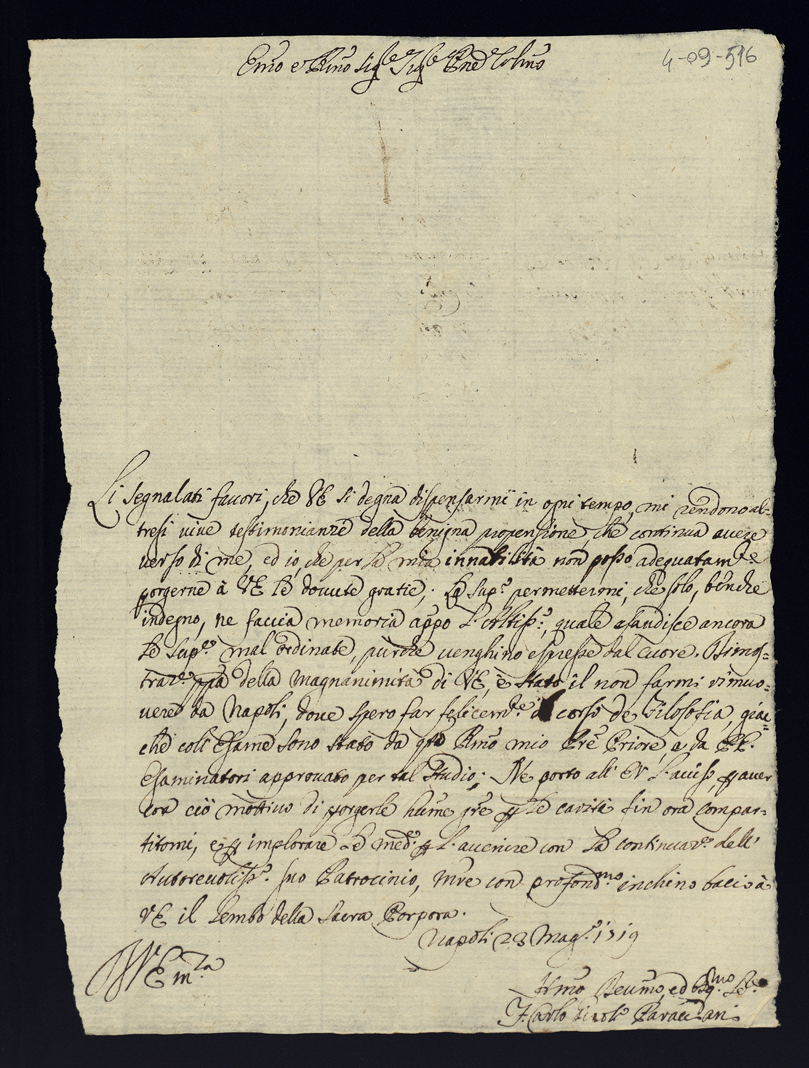 4-09-516
Emo e Rmo Sigre Sigre Pnē Colmo
Li segnalati favori, che VE si degna dispensarmi in ogni tempo, mi rendono al-
tresi vive testimonianze della benigna propensione che continua avere
verso di me, ed io che per la mia innabilità non posso adequatamte
porgerne à VE le dovute gratie; La Supco permettermi, che solo, benche
indegno, ne faccia memoria appo L'Altisso, quale esaudisce ancora
le Supce mal ordinate, purche venghino espresse dal cuore. Dimos-
traze della magnanimità di VE, è stato il non farmi rimuo-
vere da Napoli, dove spero far felicemte il corso de Filosofia, giac-
che coll'Esame sono stato da qto Rmo mio Pre Priore, e da PP.
Esaminatori approvato per tal studio; Ne porto all'EV L'aviso, aver
con ciò mottivo di porgerle hume gre le carità fin ora compar-
titomi, e implorare le mede L'avenire con la continuaze dell'
Autorevolisso suo Patrocinio, Mre con profondmo inchino bacio à
VE il Lembo della Sacra Porpora.
Napoli 23 Magο 1719
VEmza
Hmo Devmo, ed obgmo Sre
F. Carlo